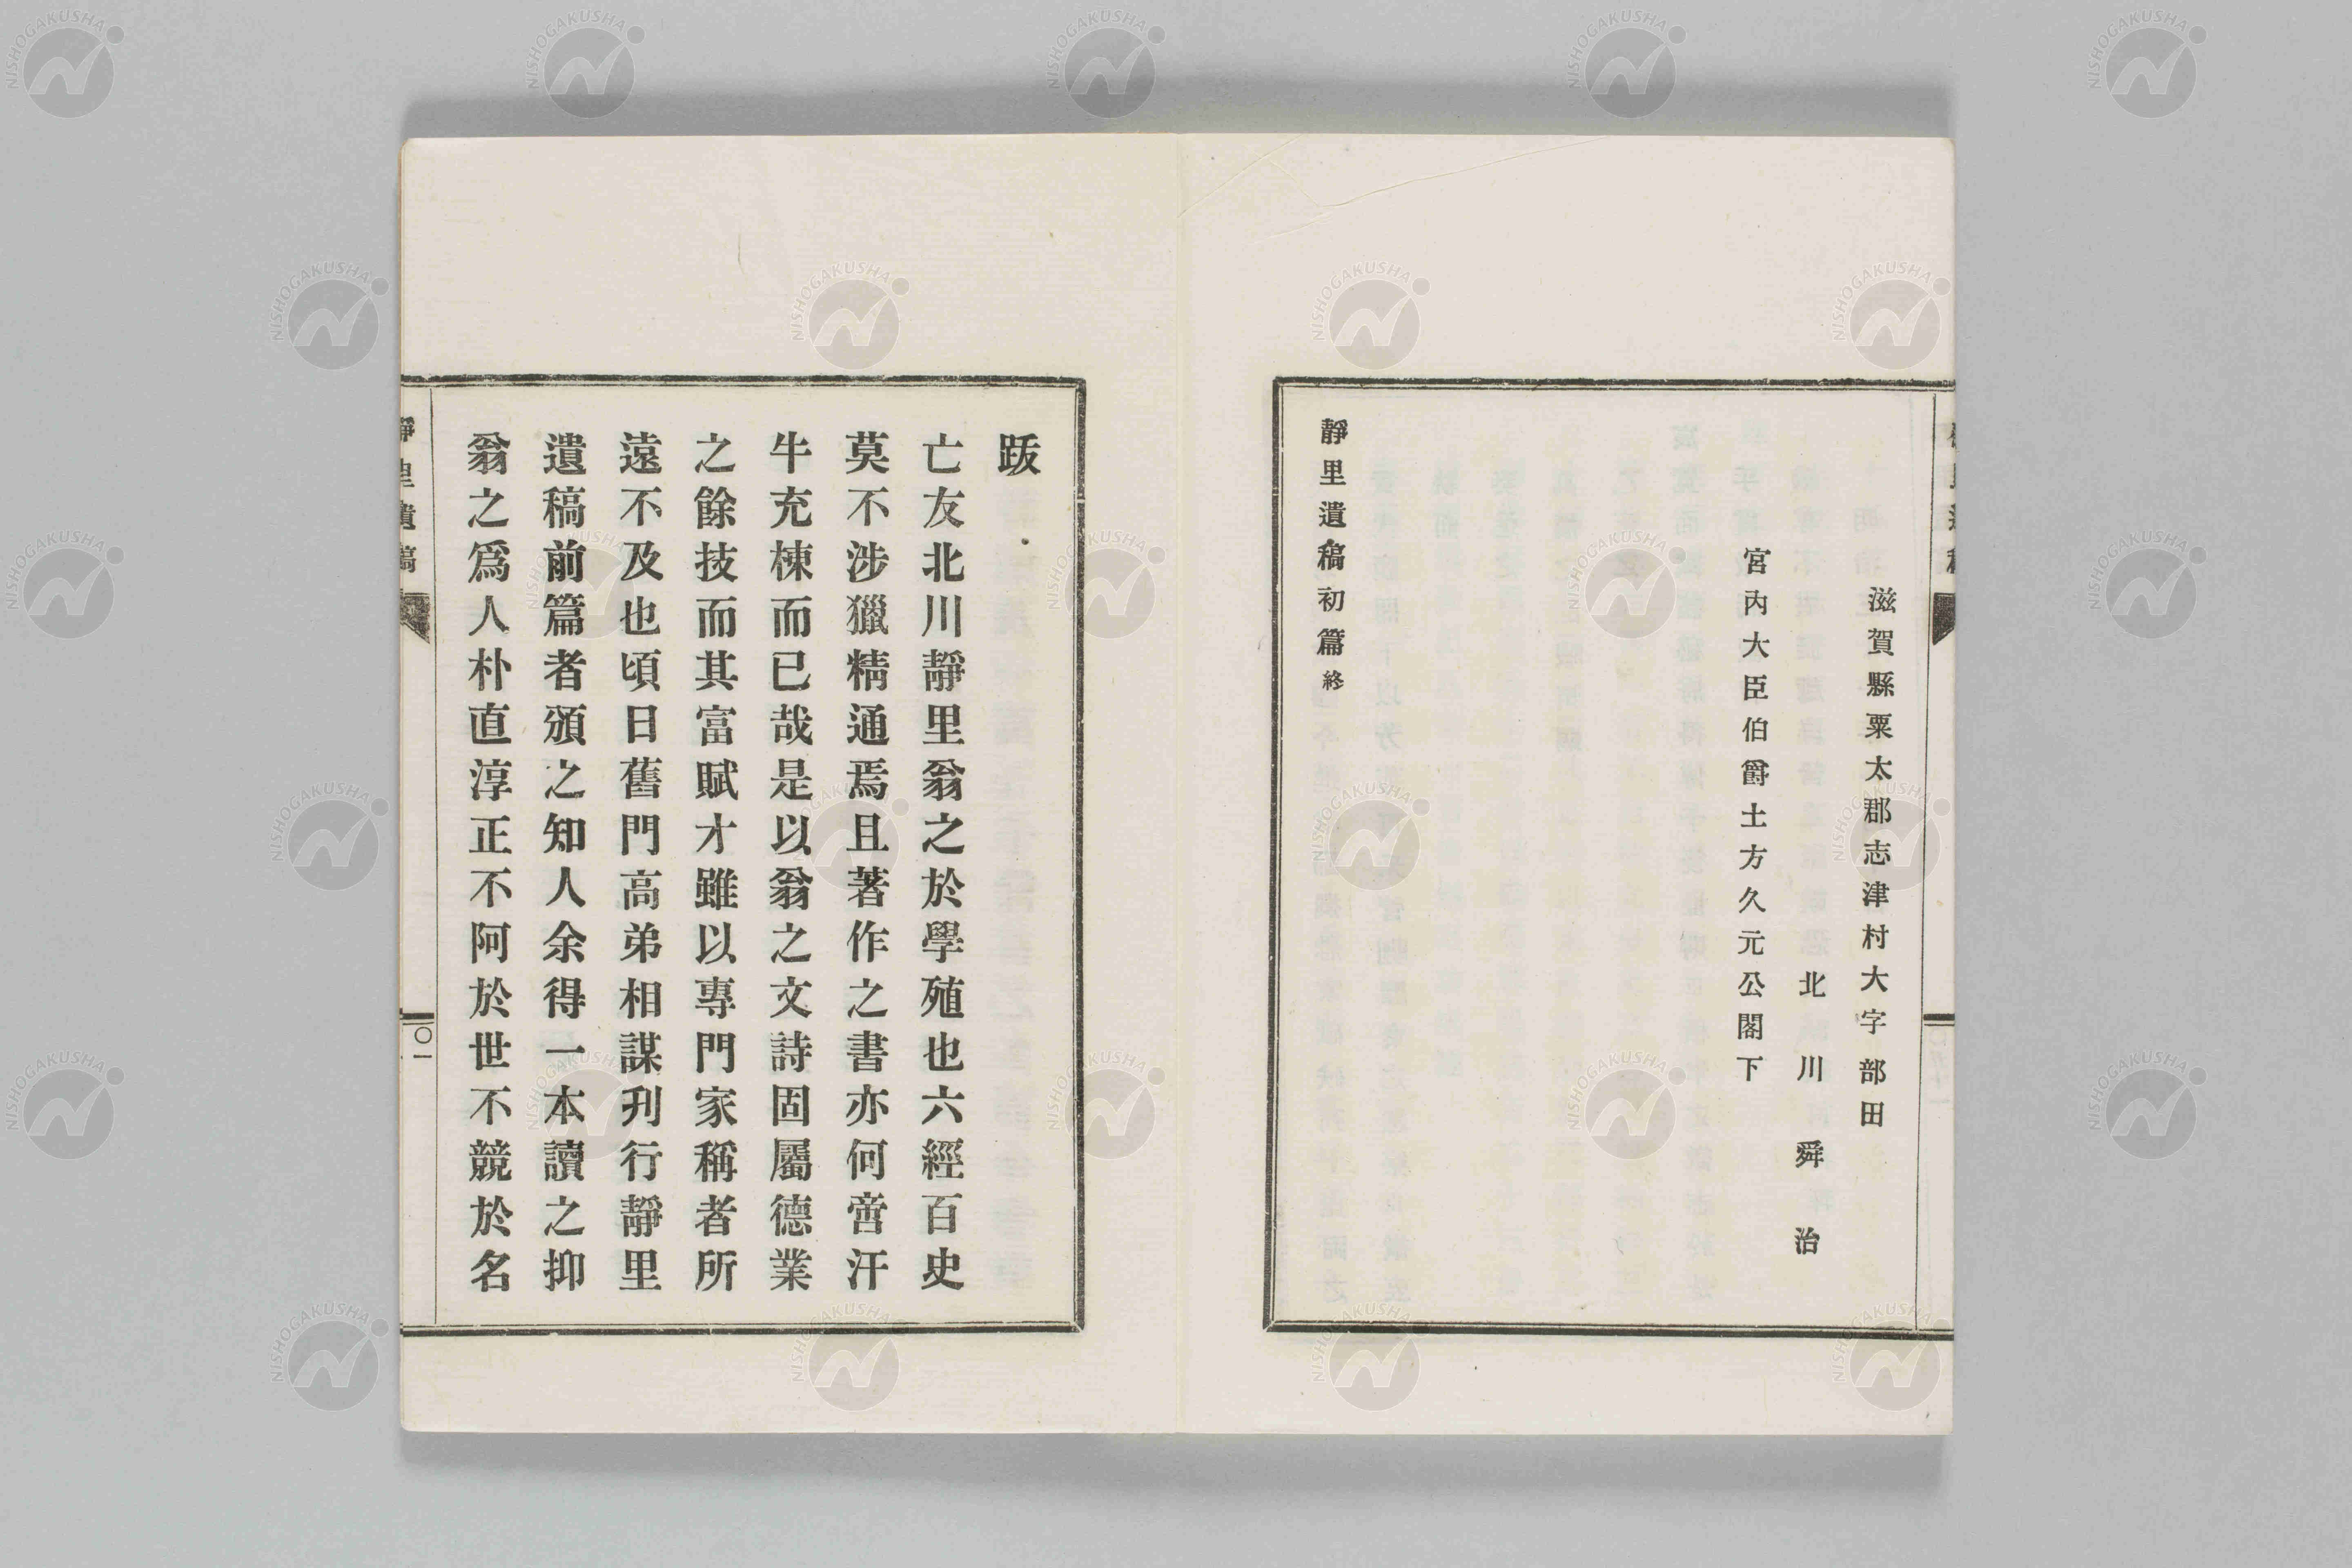 滋賀縣粟太郡志津村大字部田
北川舜治
宮內大臣伯爵土方久元公閣下
靜里遺稿初篇終
跋
亡友北川靜里翁之於學殖也六經百史
莫不涉獵精通焉且著作之書亦何啻汗
牛充棟而已哉是以翁之文詩固屬德業
之餘技而其富賦才雖以專門家稱者所
遠不及也頃日舊門高弟相謀刋行靜里
遺稿前篇者頒之知人余得一本讀之抑
翁之爲人朴直淳正不阿於世不競於名
靜里遺稿
〇一
NISHOGAKUSHA